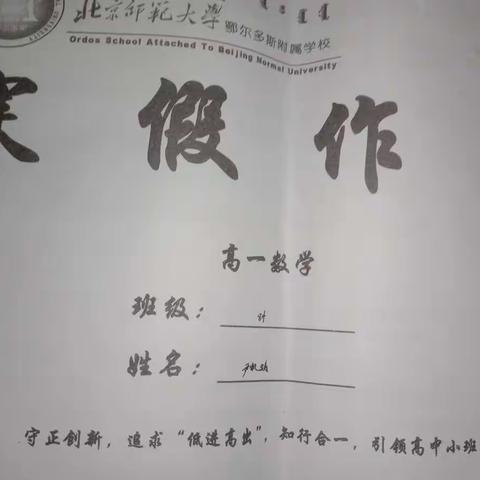 北京师范大学 鄂尔多斯附属学校
Ordos School Attached To Beijing Normal University
寒假作
高一数学
班级：计
姓名：
守正创新，追求“低进高出”，知行合一，引领高中小班